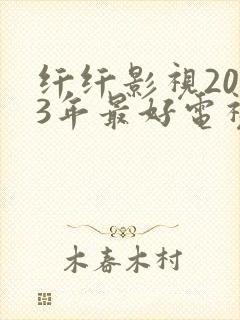 纤纤影视20
3年最好电视
木春木村